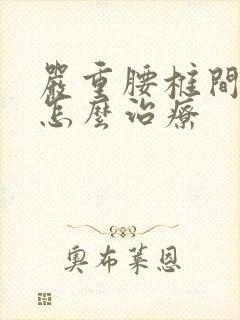 嚴重腰椎間
怎麼治療
奧布萊恩